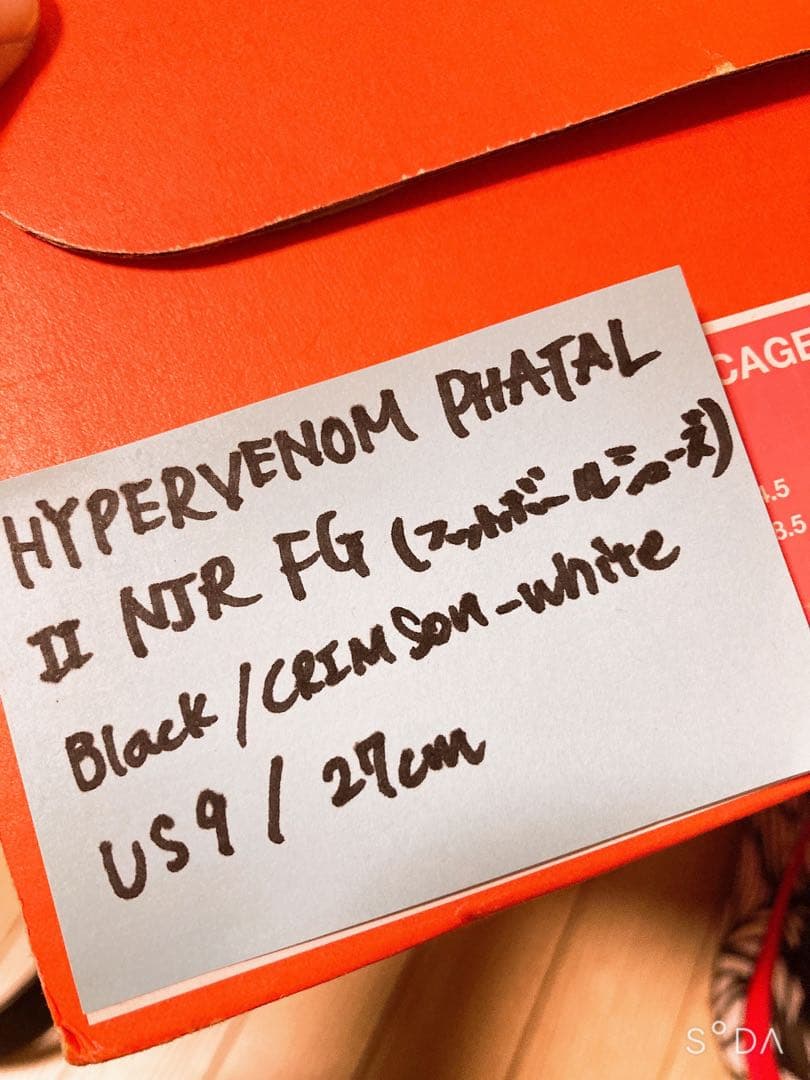 HYPERVENOM PHATAL
II NJR FG (フットボールシューズ)
Black/CRIMSON-white
US9/27cm
CAGE
4.5
3.5
SODA